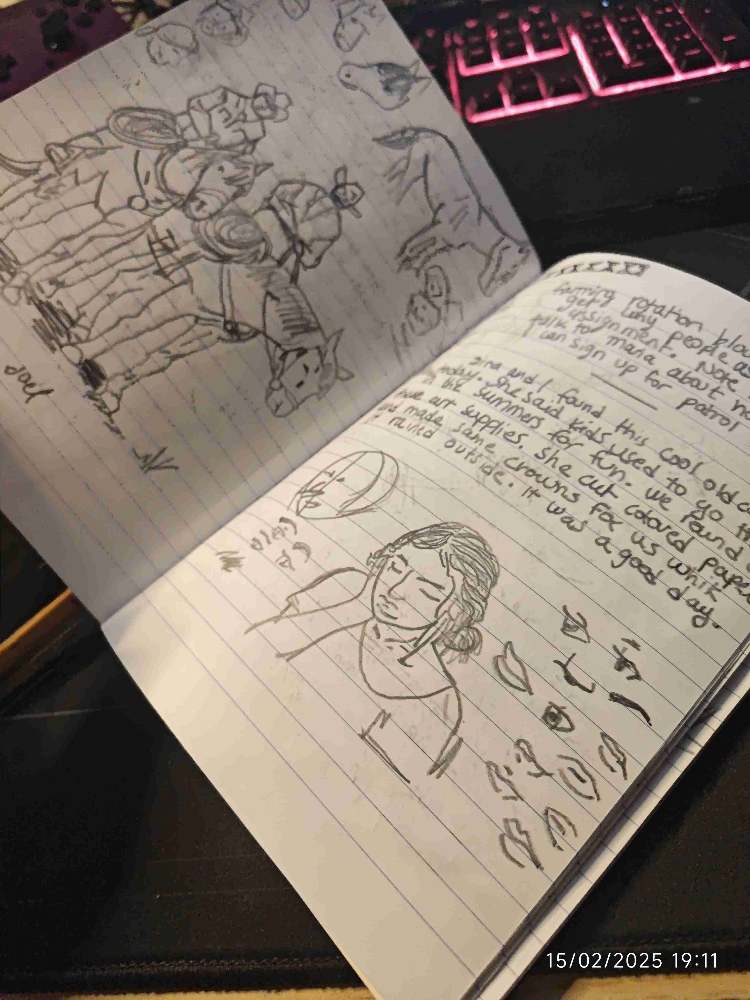 Joel
farming rotation
get why people
assignment. Note
talk to maria about
I can sign up for patrol
Dina and I found this cool old
today. She said kids used to go
in the summers for fun. we found
art supplies. She cut colored paper
and made some crowns for us while
it rained outside. It was a good day.
15/02/2025 19:11